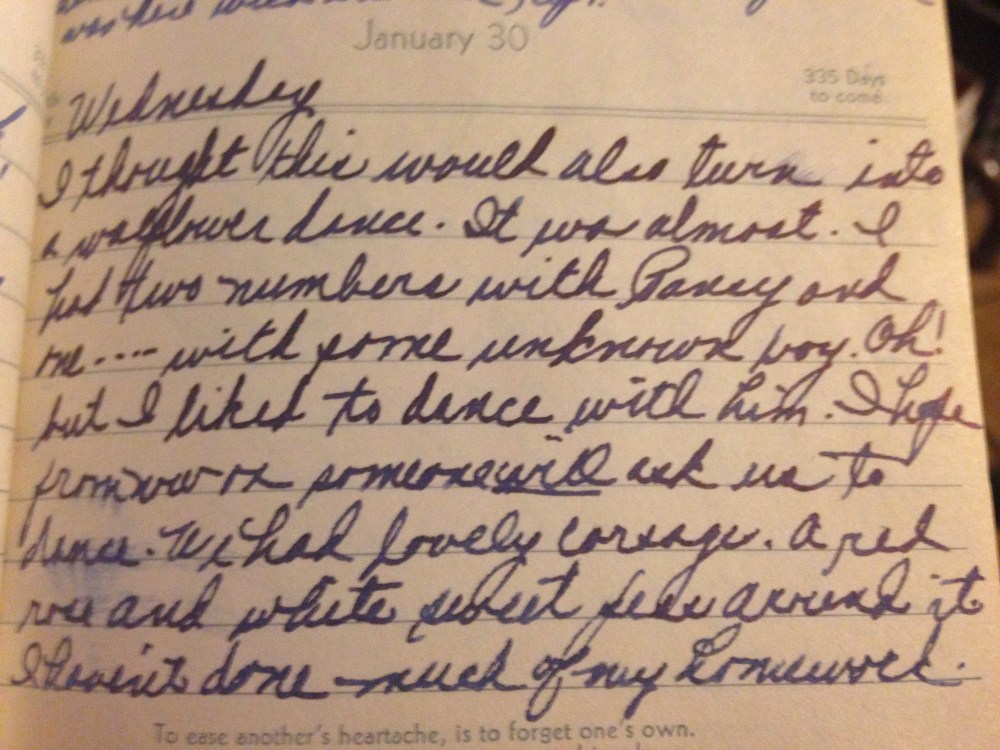 January 30
335 Days
to come
Wednesday
I thought this would also turn into
a wallflower dance. It was almost. I
had two numbers with Pansy and
one.... with some unknown boy. Oh!
but I liked to dance with him. I hope
from now on someone will ask us to
dance. We had lovely corsage. A red
rose and white sweet peas around it
I haven't done much of my homework.
To ease another's heartache, is to forget one's own.